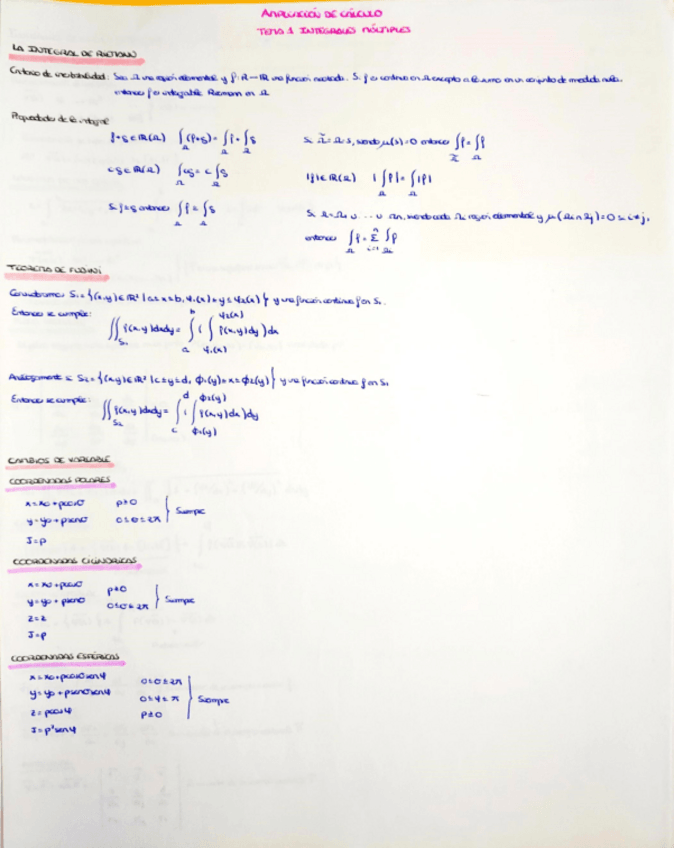 AMPLIACIÓN DE CÁLCULO
TEMA 1 INTEGRALES MÚLTIPLES
LA INTEGRAL DE RIEMANN
Criterio de integrabilidad: Sea Ω una región elemental y f: Ω → ℝ una función acotada. Si f es continua en Ω excepto a lo sumo en un conjunto de medida nula,
entonces f es integrable Riemann en Ω
Propiedades de la integral
f+g ∈ R(Ω) ∫_Ω (f+g) = ∫_Ω f + ∫_Ω g
cg ∈ R(Ω) ∫_Ω cg = c ∫_Ω g
Si f=g entonces ∫_Ω f = ∫_Ω g
μ(s)=0 entonces
|f| ∈ R(Ω) |∫_Ω f| = ∫_Ω |f|
Si Ω = Ω₁ ∪ ... ∪ Ωn, siendo cada Ωi región elemental y μ(Ωi ∩ Ωj) = 0 si i≠j,
entonces ∫_Ω f = Σ_{i=1}^n ∫_Ωi f
TEOREMA DE FUBINI
Consideramos S₁ = {(x,y) ∈ ℝ² | a≤x≤b, φ₁(x)≤y≤φ₂(x)} y una función continua f en S₁.
Entonces se cumple:
∬_S₁ f(x,y)dxdy = ∫_a^b ( ∫_φ₁(x)^φ₂(x) f(x,y)dy ) dx
Análogamente S₂ = {(x,y) ∈ ℝ² | c≤y≤d, ϕ₁(y)≤x≤ϕ₂(y)} y una función continua f en S₂
Entonces se cumple:
∬_S₂ f(x,y)dxdy = ∫_c^d ( ∫_ϕ₁(y)^ϕ₂(y) f(x,y)dx ) dy
CAMBIOS DE VARIABLE
COORDENADAS POLARES
x = x₀ + ρcosθ ρ≥0
y = y₀ + ρsenθ 0≤θ≤2π } Siempre
J = ρ
COORDENADAS CILÍNDRICAS
x = x₀ + ρcosθ ρ≥0
y = y₀ + ρsenθ 0≤θ≤2π } Siempre
z = z
J = ρ
COORDENADAS ESFÉRICAS
x = x₀ + ρcosθsenφ 0≤θ≤2π
y = y₀ + ρsenθsenφ 0≤φ≤π } Siempre
z = ρcosφ ρ≥0
J = ρ²senφ